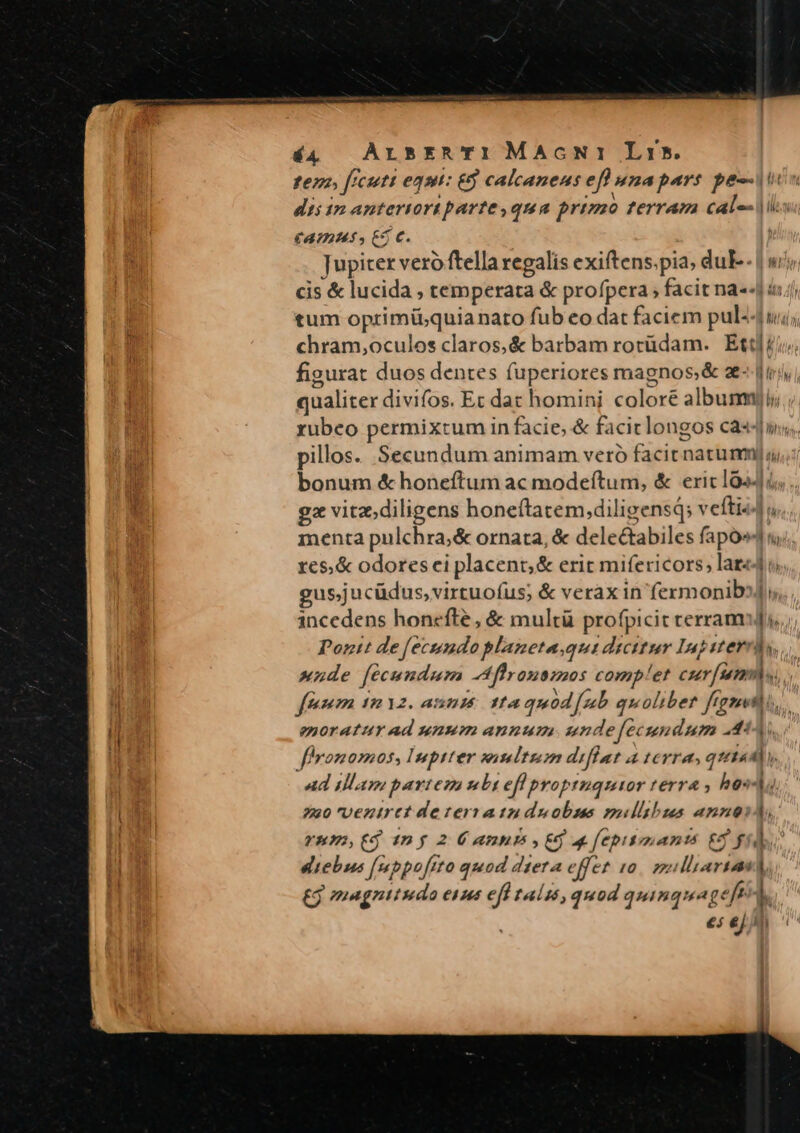 64 ALBERTI MAGNI LIB.
tem, ſicuti equi: & calcaneus eſt una pars pe-
dis in anteriori parte, qua primo terram cal-
camus, & c.
Jupiter verò ſtella regalis exiſtens, pia, dul-
cis & lucida, temperata & proſpera, facit na-
tum optimū, quia nato ſub eo dat faciem pul-
chram, oculos claros, & barbam rotūdam. Et
figurat duos dentes ſuperiores magnos, & æ-
qualiter diviſos. Et dat homini colorē album
rubeo permixtum in facie, & facit longos ca-
pillos. Secundum animam verò facit natum
bonum & honeſtum ac modeſtum, & erit lō-
gæ vitæ, diligens honeſtatem, diligensq; veſti-
menta pulchra, & ornata, & delectabiles ſapo-
res, & odores ei placent, & erit miſericors, lar-
gus, jucūdus, virtuoſus, & verax in ſermonib?
incedens honeſtè, & multū proſpicit terram:
Ponit de ſecundo planeta, qui dicitur Iupiter,
unde ſecundum Aſtronomos complet curſum
ſuum in 12. annis ita quòd ſub quolibet ſigno
moratur ad unum annum. unde ſecundum A-
ſtronomos, Iupiter multum diſtat à terra, quia
ad illam partem ubi eſt propinquior terra, ho-
mo veniret de terra in duobus millibus anno-
rum, & in 5 2 6 annis, & 4 ſeptimanis & 5
diebus ſuppoſito quod dieta eſſet 10 milliaria
& magnitudo eius eſt talis, quod quinquageſi-
es eſt